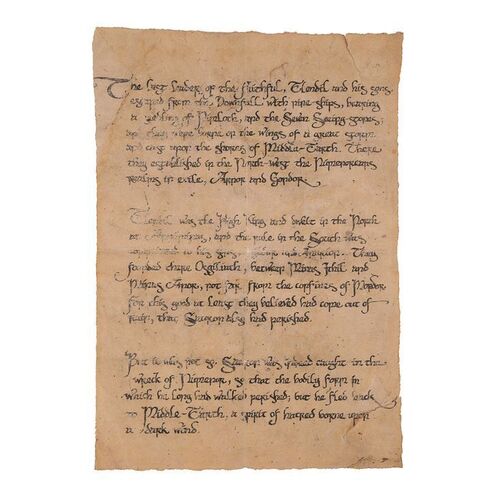 The last leader of the Faithful, Elendil and his sons,
escaped from the Downfall with nine ships, bearing
a seedling of Nimloth, and the Seven Seeing-stones;
and they were borne on the wings of a great storm
and cast upon the shores of Middle-Earth. There
they established in the North-west the Númenorean
realms in exile, Arnor and Gondor.
Elendil was the High King and dwelt in the North
at Annúminas, and the rule in the South was
committed to his sons, Isildur and Anárion. They
founded there Osgiliath, between Minas Ithil and
Minas Anor, not far from the confines of Mordor.
For this good at least they believed had come out of
ruin, that Sauron also had perished.
But it was not so. Sauron was indeed caught in the
wreck of Númenor, so that the bodily form in
which he long had walked perished; but he fled back
to Middle-Earth, a spirit of hatred borne upon
a dark wind.